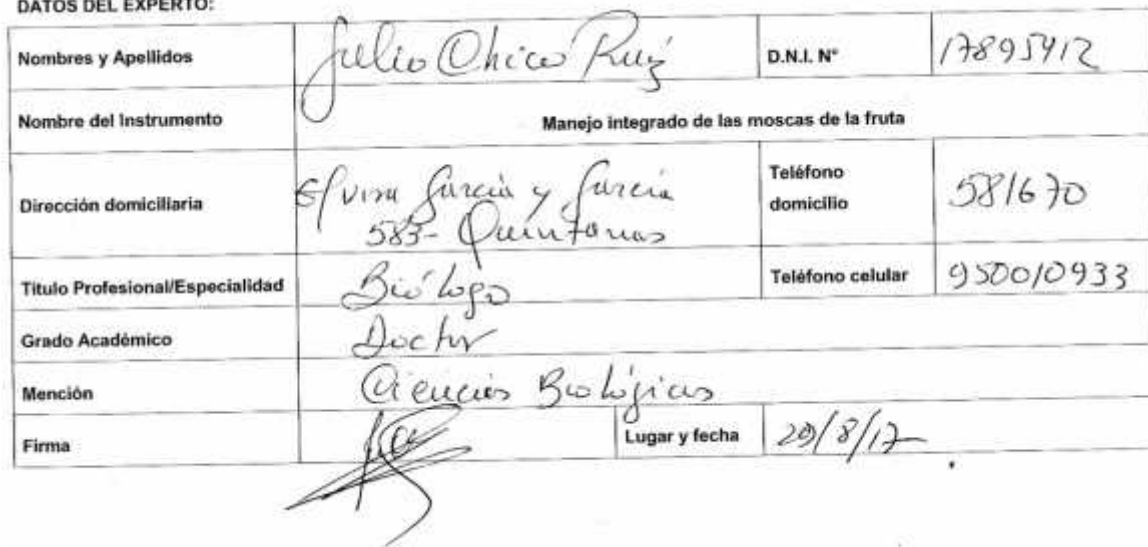 DATOS DEL EXPERTO:
Nombres y Apellidos Julio Chico Ruiz D.N.I. N° 17895412
Nombre del Instrumento Manejo integrado de las moscas de la fruta
Dirección domiciliaria Elvira García y García
583- Quintanas
Teléfono domicilio 581670
Título Profesional/Especialidad Biólogo Teléfono celular 950010933
Grado Académico Doctor
Mención Ciencias Biológicas
Firma Lugar y fecha /8/17